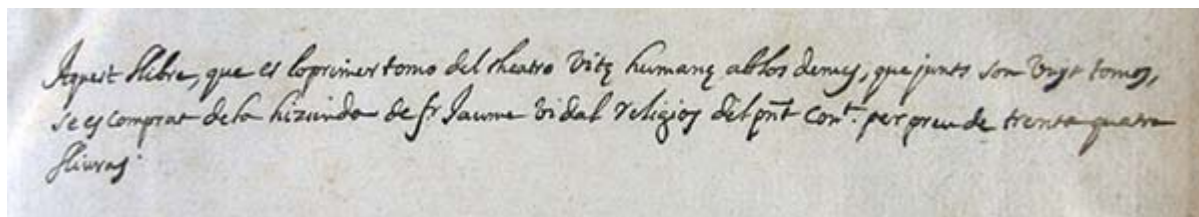 Aquest llibre, que es lo primer tomo del theatro Vitę humanę ab los demes, que junts son vuyt tomos,
se es comprat de la hizienda de fr Jaume Vidal religios del pnt Cont. per preu de trenta quatre
lliuras